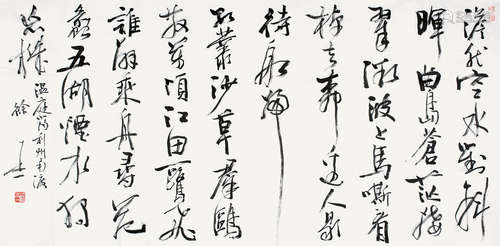 澹然空水對斜
暉曲島蒼茫接
翠微波上馬嘶看
棹去柳邊人歇
待船歸
數叢沙草羣鷗
散萬頃江田一鷺飛
誰解乘舟尋范
蠡五湖煙水獨
忘機
温庭筠利州南渡